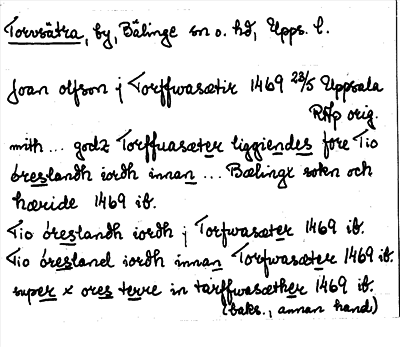 Torvsätra, by, Bälinge sn o. hd, Upps. l.
Joan olfson j Torffwasætir 1469 23/5 Uppsala
RAp orig.
mith ... godz Torffuasæter liggiendes före Tio
öreslandh iordh innan ... Bælingx sokn och
hæride 1469 ib.
Tio öreslandh iordh j Torfwasæter 1469 ib.
Tio öresland iordh innan Torfwasæter 1469 ib.
super x ores terre in tarffwasæther 1469 ib.
(baks., annan hand)